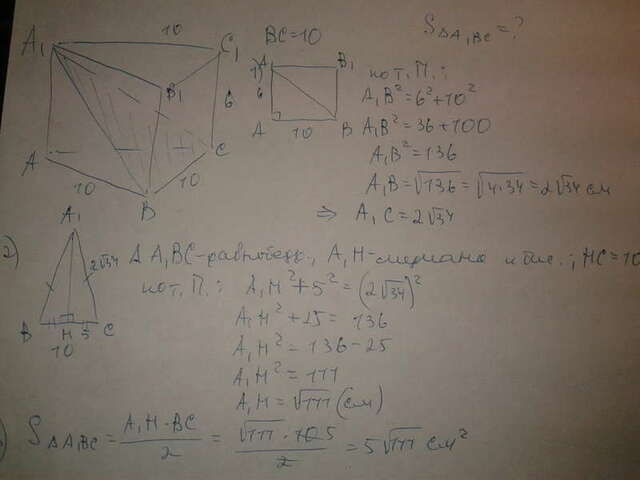 10
A₁ C₁
B₁
6
A C
10 10
B
BC=10
S△A₁BC=?
1)
A₁ B₁
6
A 10 B
по т. П.:
A₁B²=6²+10²
A₁B²=36+100
A₁B²=136
A₁B=√136=√4·34=2√34 см
⇒ A₁C=2√34
2)
A₁
2√34
B H 5 C
10
△A₁BC-равнобедр., A₁H-медиана и выс.; HC=10
по т. П.: A₁H²+5²=(2√34)²
A₁H²+25=136
A₁H²=136-25
A₁H²=111
A₁H=√111 (см)
S△A₁BC=A₁H·BC/2=√111·10 5/2=5√111 см²